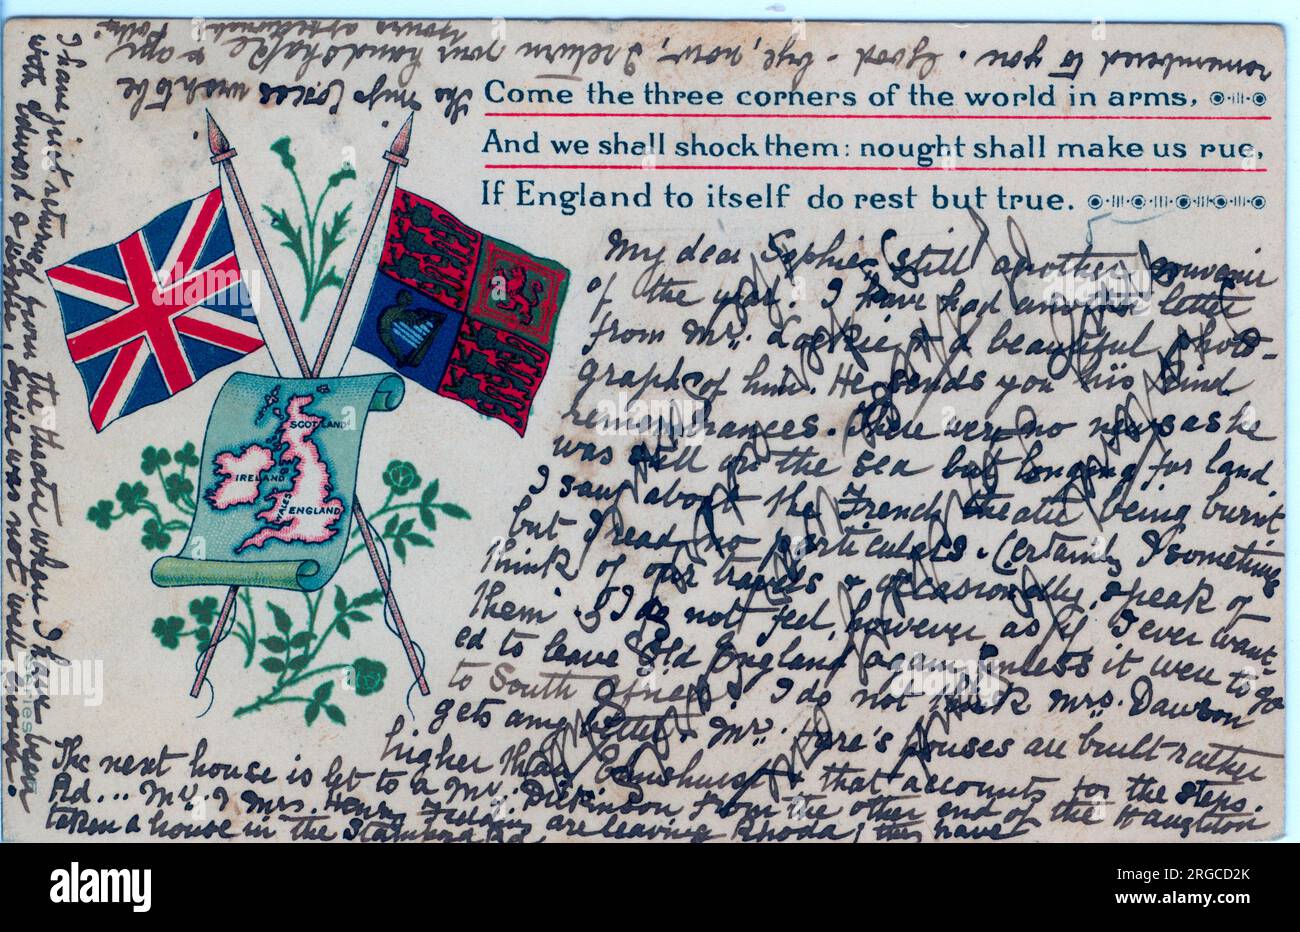 Come the three corners of the world in arms,
And we shall shock them: nought shall make us rue,
If England to itself do rest but true.
SCOTLAND
IRELAND
WALES
ENGLAND
My dear Sophie, Still another souvenir
of the year. I have had another letter
from Mr. Lockie & a beautiful photo-
graph of him. He sends you his kind
remembrances. There were no news as he
was still on the sea but longing for land.
I saw about the French theatre being burnt,
but I read no particulars. Certainly I sometimes
think of our travels & occasionally, speak of
them. I do not feel, however, as if I ever want-
ed to leave Old England again unless it were to go
to South Africa. I do not think Mrs. Dawson
gets any letter. Mr. Hore's houses are built rather
higher than & that accounts for the steps.
The next house is let to a Mr. Dickinson from the other end of the Haughton
Rd... Mr. & Mrs. Henry Fielding are leaving Rhoda, they have
taken a house in the Stamford Rd
I have just returned from the theatre where I have been
with Edward & Winnie was not well enough.
The Miss wish to be
remembered to you. Good-bye, now, I return your handshake & am
yours affectionately
Polly
alamy
Image ID: 2RGCD2K
www.alamy.com